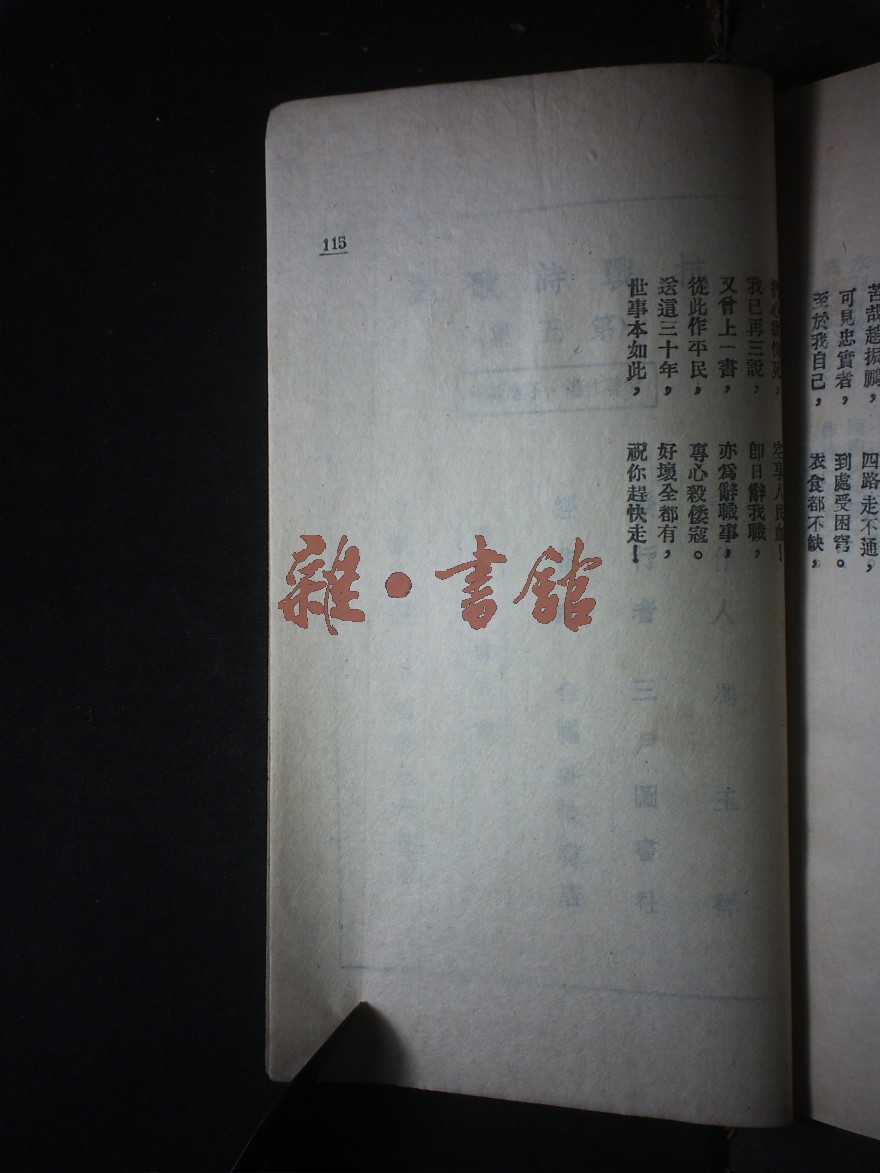 苦哉趙振鵬，四路走不通，
可見忠實者，到處受困窘。
至於我自己，衣食都不缺，
空享人民血！
我已再三說，卽日辭我職，
又曾上一書，亦爲辭職事，
從此作平民，專心殺倭寇。
送這三十年，好壞全都有，
世事本如此，祝你趕快走！
115
雜·書館